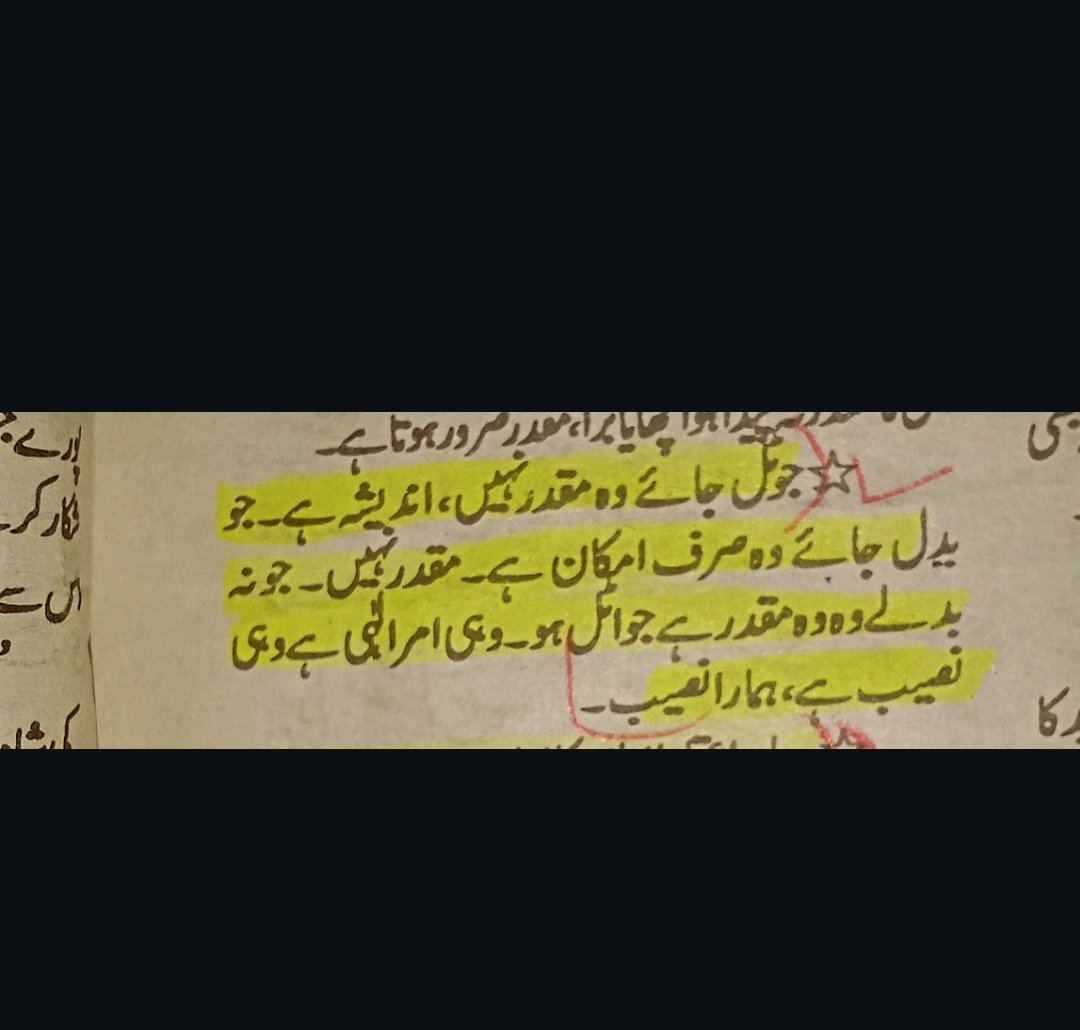 پیدا ہوا اچھا یا برا، مقدر ضرور ہوتا ہے۔
☆ جو ٹل جائے وہ مقدر نہیں، اندیشہ ہے۔ جو
بدل جائے وہ صرف امکان ہے۔ مقدر نہیں۔ جو نہ
بدلے وہ وہ مقدر ہے جو اٹل ہو۔ وہی امر الٰہی ہے وہی
نصیب ہے، ہمارا نصیب۔